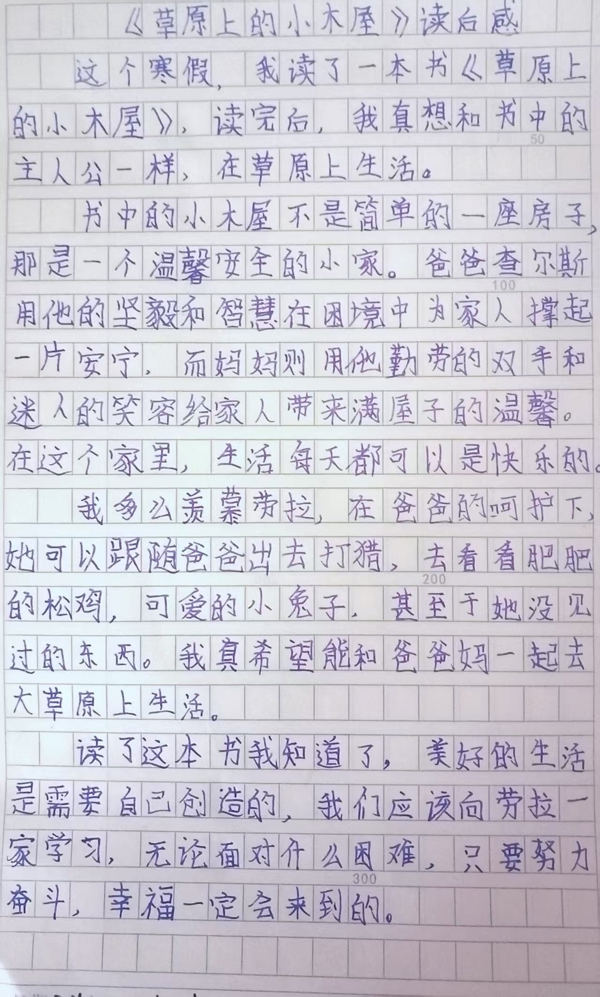 《草原上的小木屋》读后感
这个寒假，我读了一本书《草原上
的小木屋》，读完后，我真想和书中的
50
主人公一样，在草原上生活。
书中的小木屋不是简单的一座房子，
那是一个温馨安全的小家。爸爸查尔斯
100
用他的坚毅和智慧在困境中为家人撑起
一片安宁，而妈妈则用他勤劳的双手和
迷人的笑容给家人带来满屋子的温馨。
在这个家里，生活每天都可以是快乐的。
我多么羡慕劳拉，在爸爸的呵护下，
她可以跟随爸爸出去打猎，去看看肥肥
200
的松鸡，可爱的小兔子，甚至于她没见
过的东西。我真希望能和爸爸妈一起去
大草原上生活。
读了这本书我知道了，美好的生活
是需要自己创造的，我们应该向劳拉一
家学习，无论面对什么困难，只要努力
300
奋斗，幸福一定会来到的。